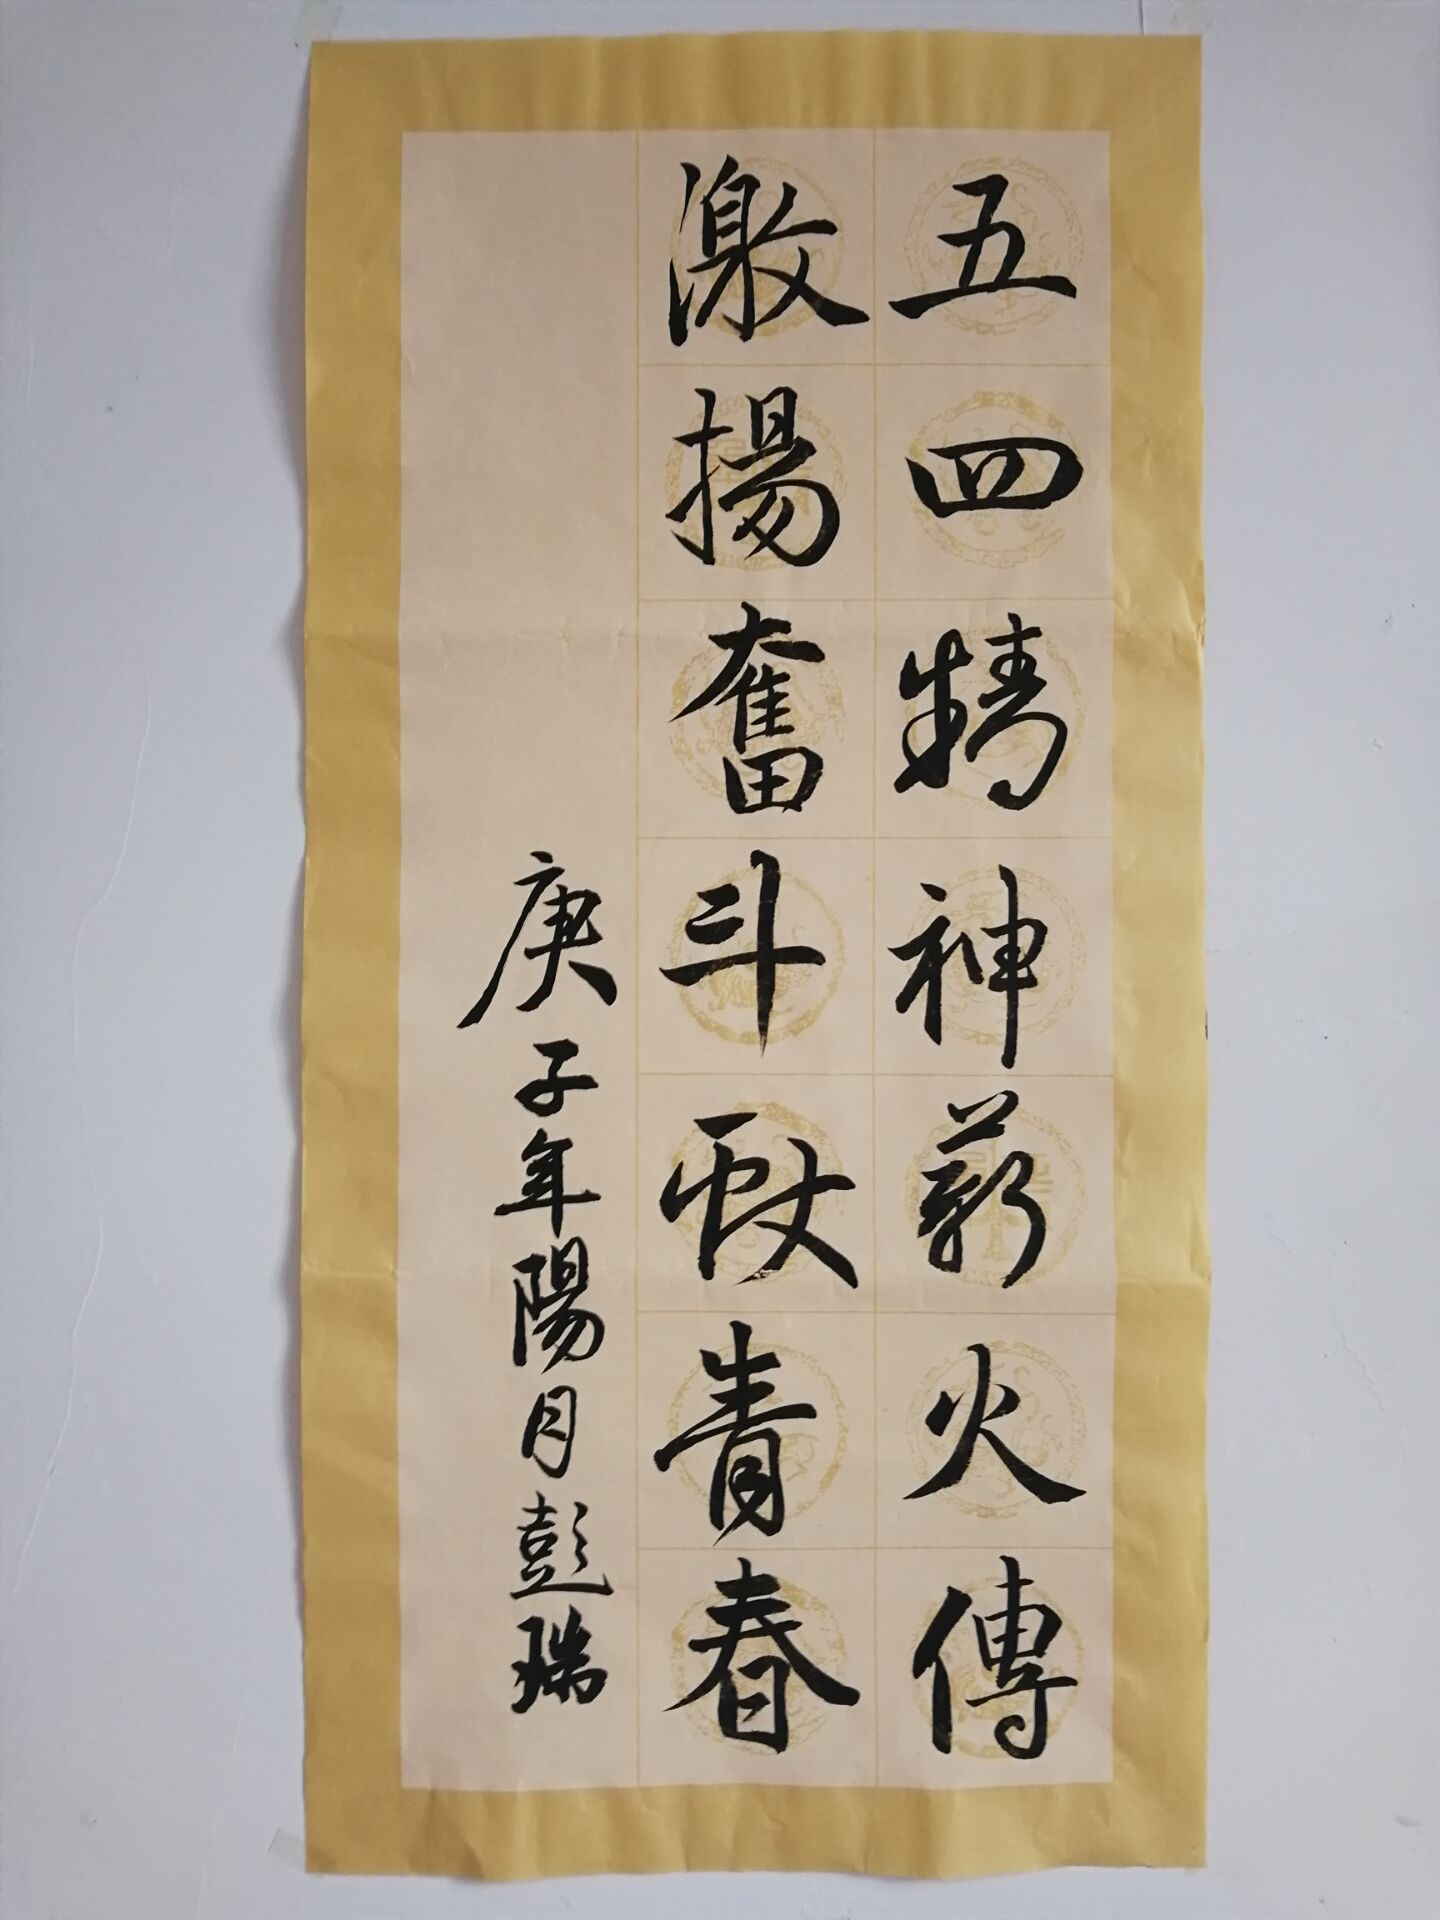 五四精神薪火傳
激揚奮斗致青春
庚子年陽月彭瑞